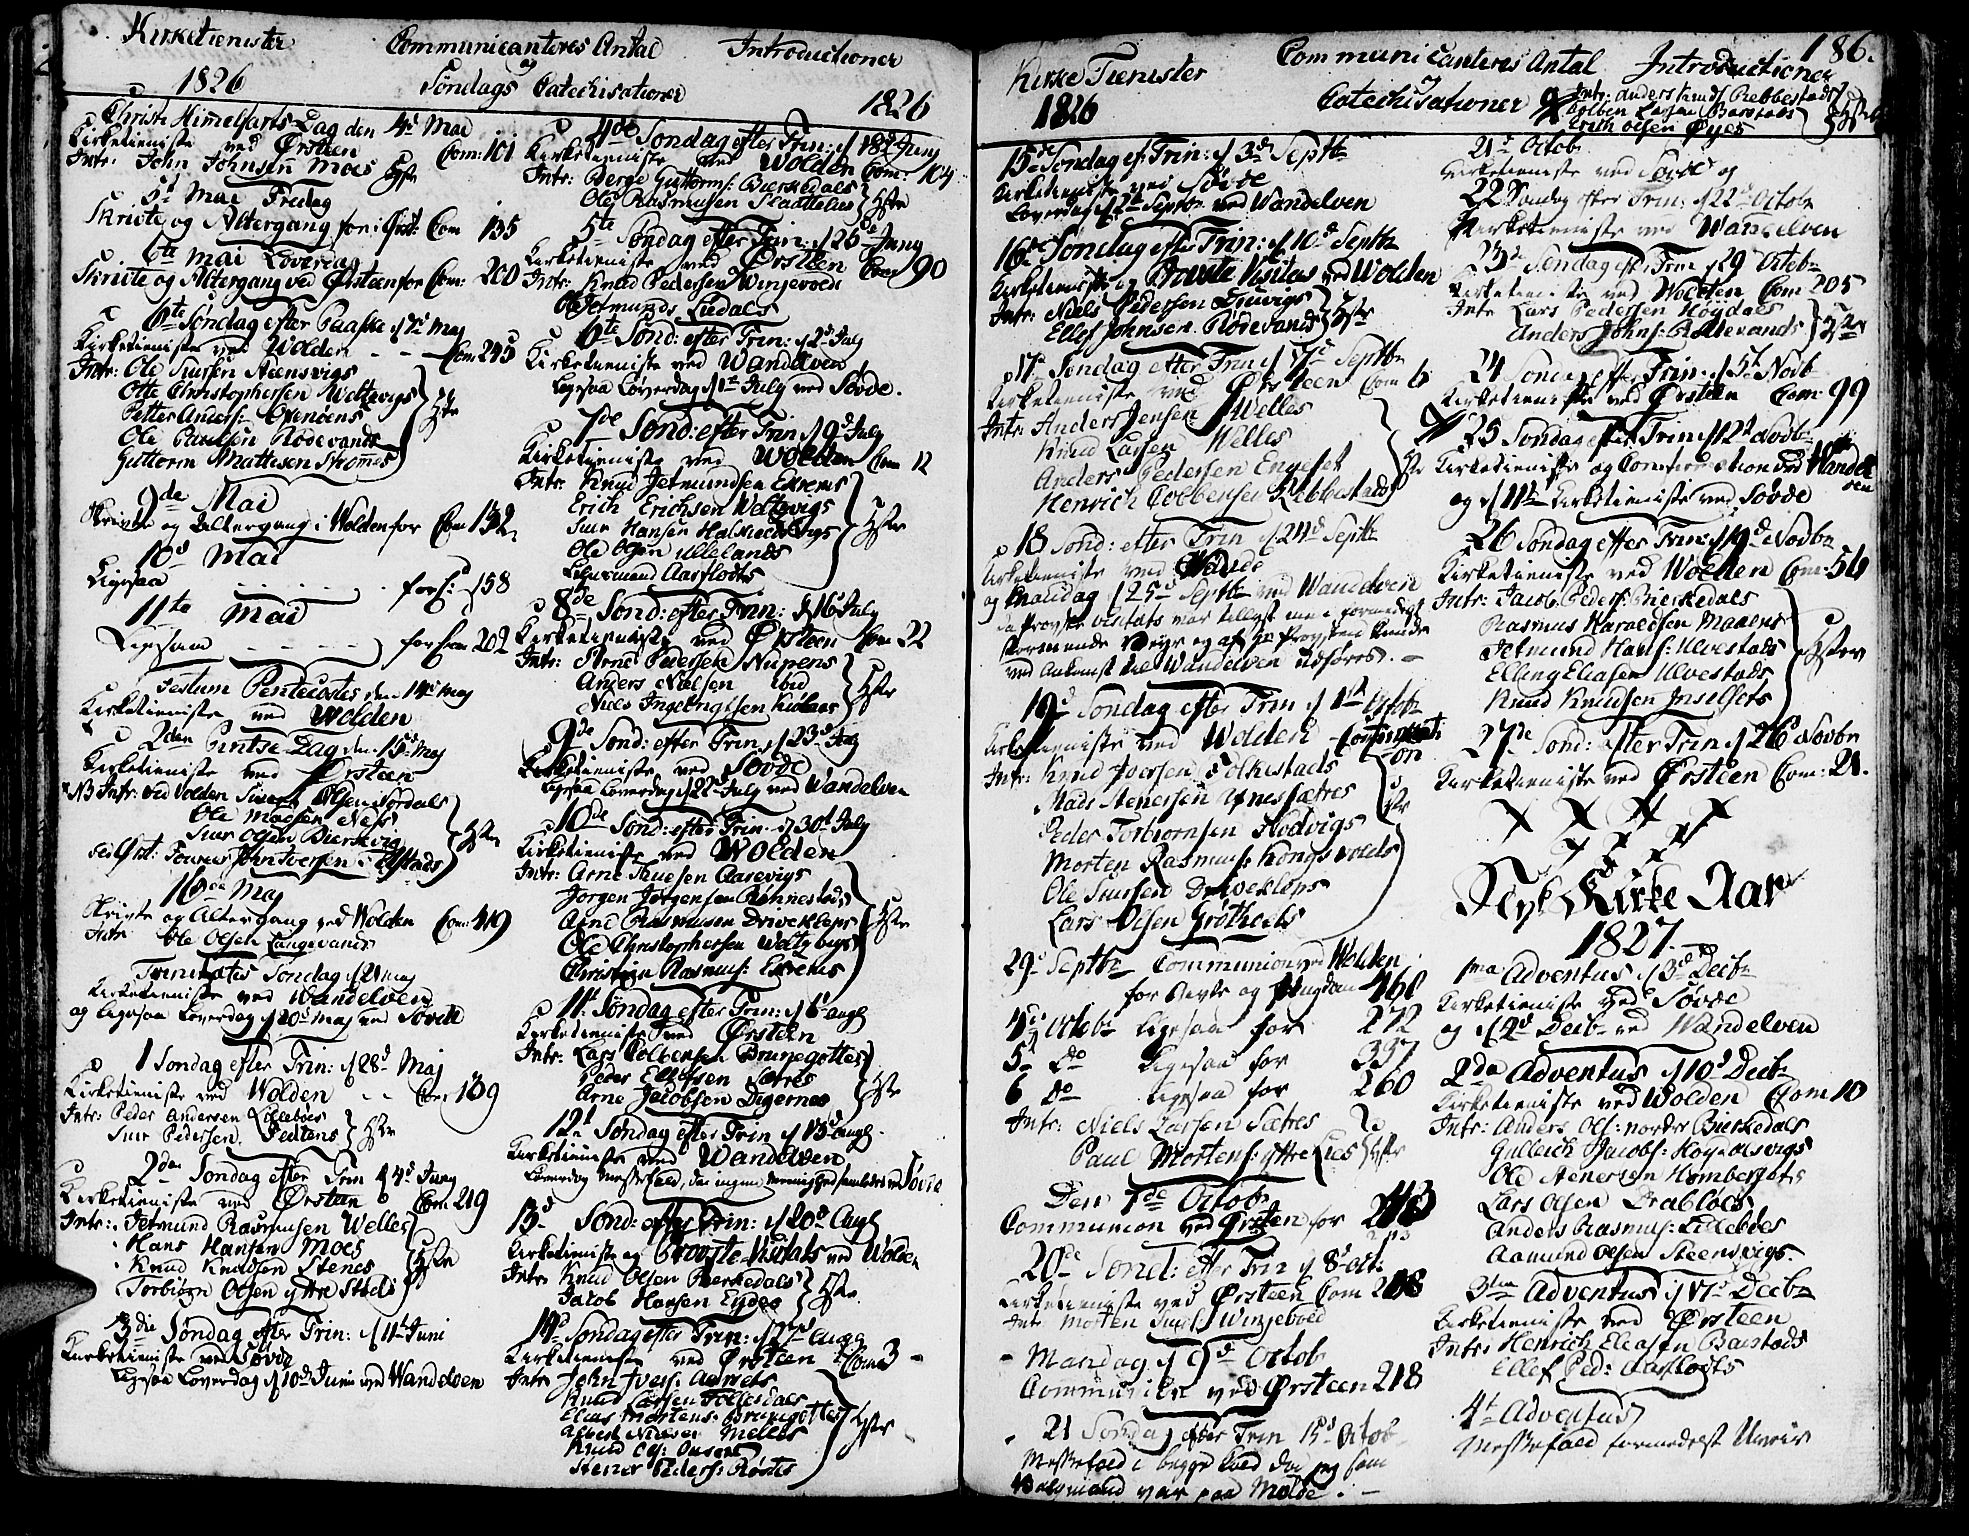 Kirketienester Communicanteres Antal Introductioner
og
1826 Søndags Catechisationer 1826
Christi Himmelfarts Dag den 4d Mai
Kirketieniste ved Ørsteen Com: 101
Intr: John Johnsen Moes Hstr
5t Mai Fredag
Skrivte og Altergang for: Com 135
6te Mai Løverdag
Skrivte og Altergang ved Ørsteen for Com: 200
6te Søndag efter Paaske d 7d Maj
Kirketieniste ved Wolden - - - Com: 245
Intr: Ole Siursen Steensvigs
Otte Christophersen Woltevigs
Petter Anders:
Ole Paulsen Rødevands
Guttorm Mattesen
Hstr
9de Mai
Skrivte og Altergang i Wolden for Com 132
10d Mai
Ligesaa - - - - for C: 158
11te Mai
Ligesaa - - - - for Com 202
Festum Pentecostes den 14d Maj
Kirketieniste ved Wolden
2den Pintse Dag den 15d Maj
Kirketieniste ved Ørsteen
NB Intr: ved Wolden Siver Olsen Nordals
Ole Madsen Næss
Siur Olsen Bierkevig
ved Ørst: John Iversen
Hstr
16de Maj
Skrivte og Altergang ved Wolden Com: 419
Intr Ole Olsen Langevands
Trinitatis Søndag d 21 Maj
Kirketieniste ved Wandelven
og Ligesaa Løverdag d 20d Maj ved Søvde
1 Søndag efter Trin: d 28d Maj
Kirketieniste ved Wolden - - Com: 109
Intr: Peder Andersen Lilleboes
Siur Pedersen Pedtens Hstr
2den Søndag efter Trin d 4d Juny
Kirketieniste ved Ørsteen Com: 219
Intr: Jetmund Rasmusen Welles
Hans Hansen Moes
Knud Knudsen Stenes
Torbiørn Olsen yttre Steds
Hstr
3die Søndag efter Trin: d 11t Juni
Kirketieniste ved Søvde
Ligesaa Løverdag d 10d Juni ved Wandelven
4de Søndag efter Trin: d 18d Juny
Kirketieniste ved Wolden Com: 104
Intr: Berge Guttorms: Bierkedals
Ole Rasmusen Slaattelies Hstr
5te Søndag efter Trin: d 25d Juny
Kirketieniste ved Ørsteen Com 90
Intr: Knud Pedersen Winjevold
Ole Jetmunds Liedals
6te Sønd: efter Trin: d 2d July
Kirketieniste ved Wandelven
Ligesaa Løverdag d 1te July ved Søvde.
7de Sønd: efter Trin d 9d July
Kirketieniste ved Wolden Com 12
Intr: Knud Jetmundsen Exrems
Erich Erichsen Woltevigs
Siur Hansen
Ole Olsen Ullelands
Aarflodts
Hstr
8de Sønd: efter Trin: d 16d July
Kirketieniste ved Ørsteen Com 22
Intr: Arne Pedersen Nupens
Anders Nielsen ibid
Niels Ingebrigtsen Kiølaas
Hstr
9de Sønd: efter Trin. d 23d July
Kirketieniste ved Søvde
Ligesaa Løverdag d 22d July ved Wandelven
10de Sønd: efter Trin. d 30t July
Kirketieniste ved Wolden
Intr: Arne Aarevigs
Jørgen Jørgensen Rønnestads
Arne Rasmusen Drivekleps
Ole Christophersen Woltevigs
Christian Rasmus: Exrems
Hstr
11t Søndag efter Trin: d 6t Augt
Kirketieniste ved Ørsteen
Intr: Lars Colbensen Brunegottes
Peder Ellefsen Sætres
Arne Jacobsen Digernes
Hstr
12t Søndag efter Trin d 13d Augt.
Kirketieniste ved Wandelven
Løverdag Messefald, da ingen Menighed samledes ved Søvde
13d Sønd: efter Trin: d 20d Augt
Kirketieniste og Provste Visitats ved Wolden
Intr: Knud Olsen Bierkedals
Jacob Hansen Eydes Hstr
14d Søndag efter Trin: d 27d Augt
Kirketieniste ved Ørsteen Com 3 -
Intr: John Ivers: Aamets
Knud Larsen Follesdals
Elias Mortens: Brunegottes
Albert Nielsen Melles
Knud Ols:
Stener Peders: Røstes
Hstr
Kirke Tienester Communicanteres Antal Introductioner 186.
og
1826 Catechisationer
Intr: Anders Knuds Rebbestads
Colben Larsen Barstads
Erich Olsen Øyes
Hstr
15de Søndag ef: Trin: d 3d Septbr
Kirketieniste ved Søvde
Løverdag d 2d Septbr ved Wandelven
16de Søndag efter Trin: d 10d Septbr
Kirketieniste og Provste Visitas ved Wolden
Intr: Niels Pedersen
Ellef Johnsen Rødevands Hstr
17d Søndag efter Trin d 17d Septbr
Kirketieniste ved Ørsteen Com 6
Intr: Anders Jensen Welles
Knud Larsen Welles
Anders Pedersen Engeset
Henrich Colbensen Rebbestads
Hstr
18 Sønd: efter Trin d 24d Septbr
Kirketieniste ved Søvde
og Mandag d 25d Septbr ved Wandelven
da Provste visitats var tillyst men formedelst
Stormende og af Hr Provsten kunde
ved Ankomst til Wandelven udføres. -
19d Søndag efter Trin d 1te Octobr
Kirketieniste ved Wolden - Confirmati
on
Intr: Knud Joensen Folkestads
Mads Stenersen Ytnessætres
Peder Torbiørnsen Hodvigs
Morten Rasmus: Kongsvolds
Ole Siursen Driveklops
Lars Olsen Grøtheels
Hstr
29d Septbr Communion ved Wolden
for Børn og Ungdom 460
4d Octobr ligesaa for 272
5t do ligesaa for 337
6 do ligesaa for 260
Intr: Niels Larsen Sætres
Paul Mortens: yttre Lies Hstr
Den 7de Octobr
Communion ved Ørsten for 213
20de Sønd: efter Trin d 8d Oct:
Kirketieniste ved Ørsteen Com 208
Intr Morten Siurs: Winjevold
Mandag d 9de Octob
Communion ved Ørsteen 218
21 Søndag efter Trin 15d Octob
Messefald i begge Kald da jeg som
var paa Molde. -
21d Octob
Kirketieniste ved Søvde og
22 Søndag efter Trin: d 22d Octobr
Kirketieniste ved Wandelven
23d Søndag eft: Trin d 29 Octobr
Kirketieniste ved Wolden Com 205
Intr Lars Pedersen Høydals
Anders Johns: Rødevands Hstr
24 Søndag efter Trin: d 5t Novb
Kirketieniste ved Ørsteen Com: 99
25 Søndag efter Trin d 12t Novb
Kirketieniste og Confirmation ved Wandel
ven
og d 11te Kirketieniste ved Søvde
26 Søndag efter Trin: d 19d Novbr
Kirketieniste ved Wolden Com: 56
Intr: Jacob Peders: Bierkedals
Rasmus Haraldsen Maaens
Jetmund Hans: Ulvestads
Elling Eliasen Ulvestads
Knud Knudsen Insellsets
Hstr
27de Sønd: efter Trin d 26d Novbr
Kirketieniste ved Ørsteen Com: 21.
Nyt Kirke Aar
1827.
1ma Adventus d 3d Decbr
Kirketieniste ved Søvde
og d 2d Decb ved Wandelven
2da Adventus d 10d Decbr
Kirketieniste ved Wolden Com 10
Intr: Anders Ols: nordre Bierkedals
Gullich Jacobs: Høydalsvigs
Ole Stenersen Hombergsets
Lars Olsen Drabløes
Anders Rasmus: Lilleboes
Aamund Olsen Steensvigs
3tia Adventus d 17d Decbr
Kirketieniste ved Ørsteen
Intr: Henrich Eliasen Barstads
Ellef Ped: Aarflodts
4t Adventus
Messefald formedelst Uveir